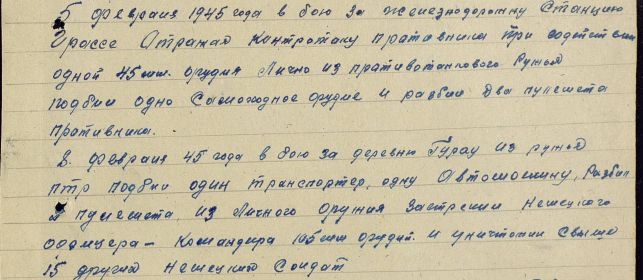 5 февраля 1945 года в бою за железнодорожну станцию
Грассе отражая контротаку пративника при содействии
одной 45 мм. орудия Лично из пративотанкового Ружья
подбил одно Самоходное орудие и разбил два пулемета
противника.
8. февраля 45 года в бою за деревню Гурау из ружья
птр подбил один транспортер, одну Автомошину, Разбил
2 пулемета, из Личного оружия Застрелил Немецкого
офицера - Командира 105 мм орудий. и уничтожил свыше
15 других Немецких Солдат